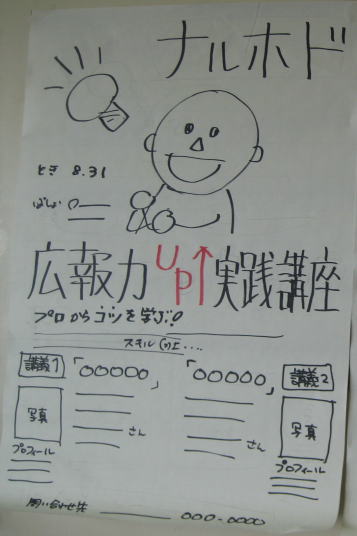 ナルホド
とき 8.31
ばしょ
広報力up↑実践講座
プロからコツを学ぶ!
スキル向上....
講義1 「○○○○○」
「○○○○○」 講義2
写真
さん
プロフィール
さん
写真
プロフィール
問い合わせ先 ○○○-○○○○